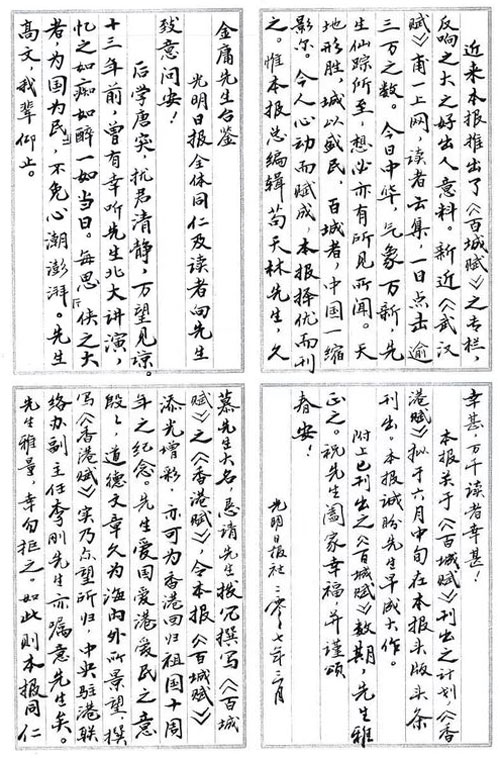 金庸先生台鉴
光明日报全体同仁及读者向先生
致意问安！
后学唐突，扰君清静，万望见谅。
十三年前，曾有幸听先生北大讲演，
忆之如痴如醉一如当日。每思侠之大
者，为国为民，不免心潮澎湃。先生
高文，我辈仰止。
近来本报推出了《百城赋》之专栏，
反响之大之好出人意料。新近《武汉
赋》甫一上网，读者云集，一日点击逾
三万之数。今日中华，气象万新，先
生仙踪所至，想必亦有所见所闻。天
地形胜，城以盛民，百城者，中国一缩
影尔。今人心动而赋成，本报择优而刊
之。惟本报总编辑苟天林先生，久
慕先生大名，恳请先生拨冗撰写《百城
赋》之《香港赋》，令本报《百城赋》
添光增彩，亦可为香港回归祖国十周
年之纪念。先生爱国爱港爱民之意
殷殷，道德文章久为海内外所景望，撰
写《香港赋》实乃众望所归，中央驻港联
络办副主任李刚先生亦嘱意先生矣。
先生雅量，幸勿拒之。如此则本报同仁
幸甚，万千读者幸甚！
本报关于《百城赋》刊出之计划，《香
港赋》拟于六月中旬在本报头版头条
刊出。本报诚盼先生早成大作。
附上已刊出之《百城赋》数期，先生雅
正之。祝先生阖家幸福，并谨颂
春安！
光明日报社 二零零七年三月